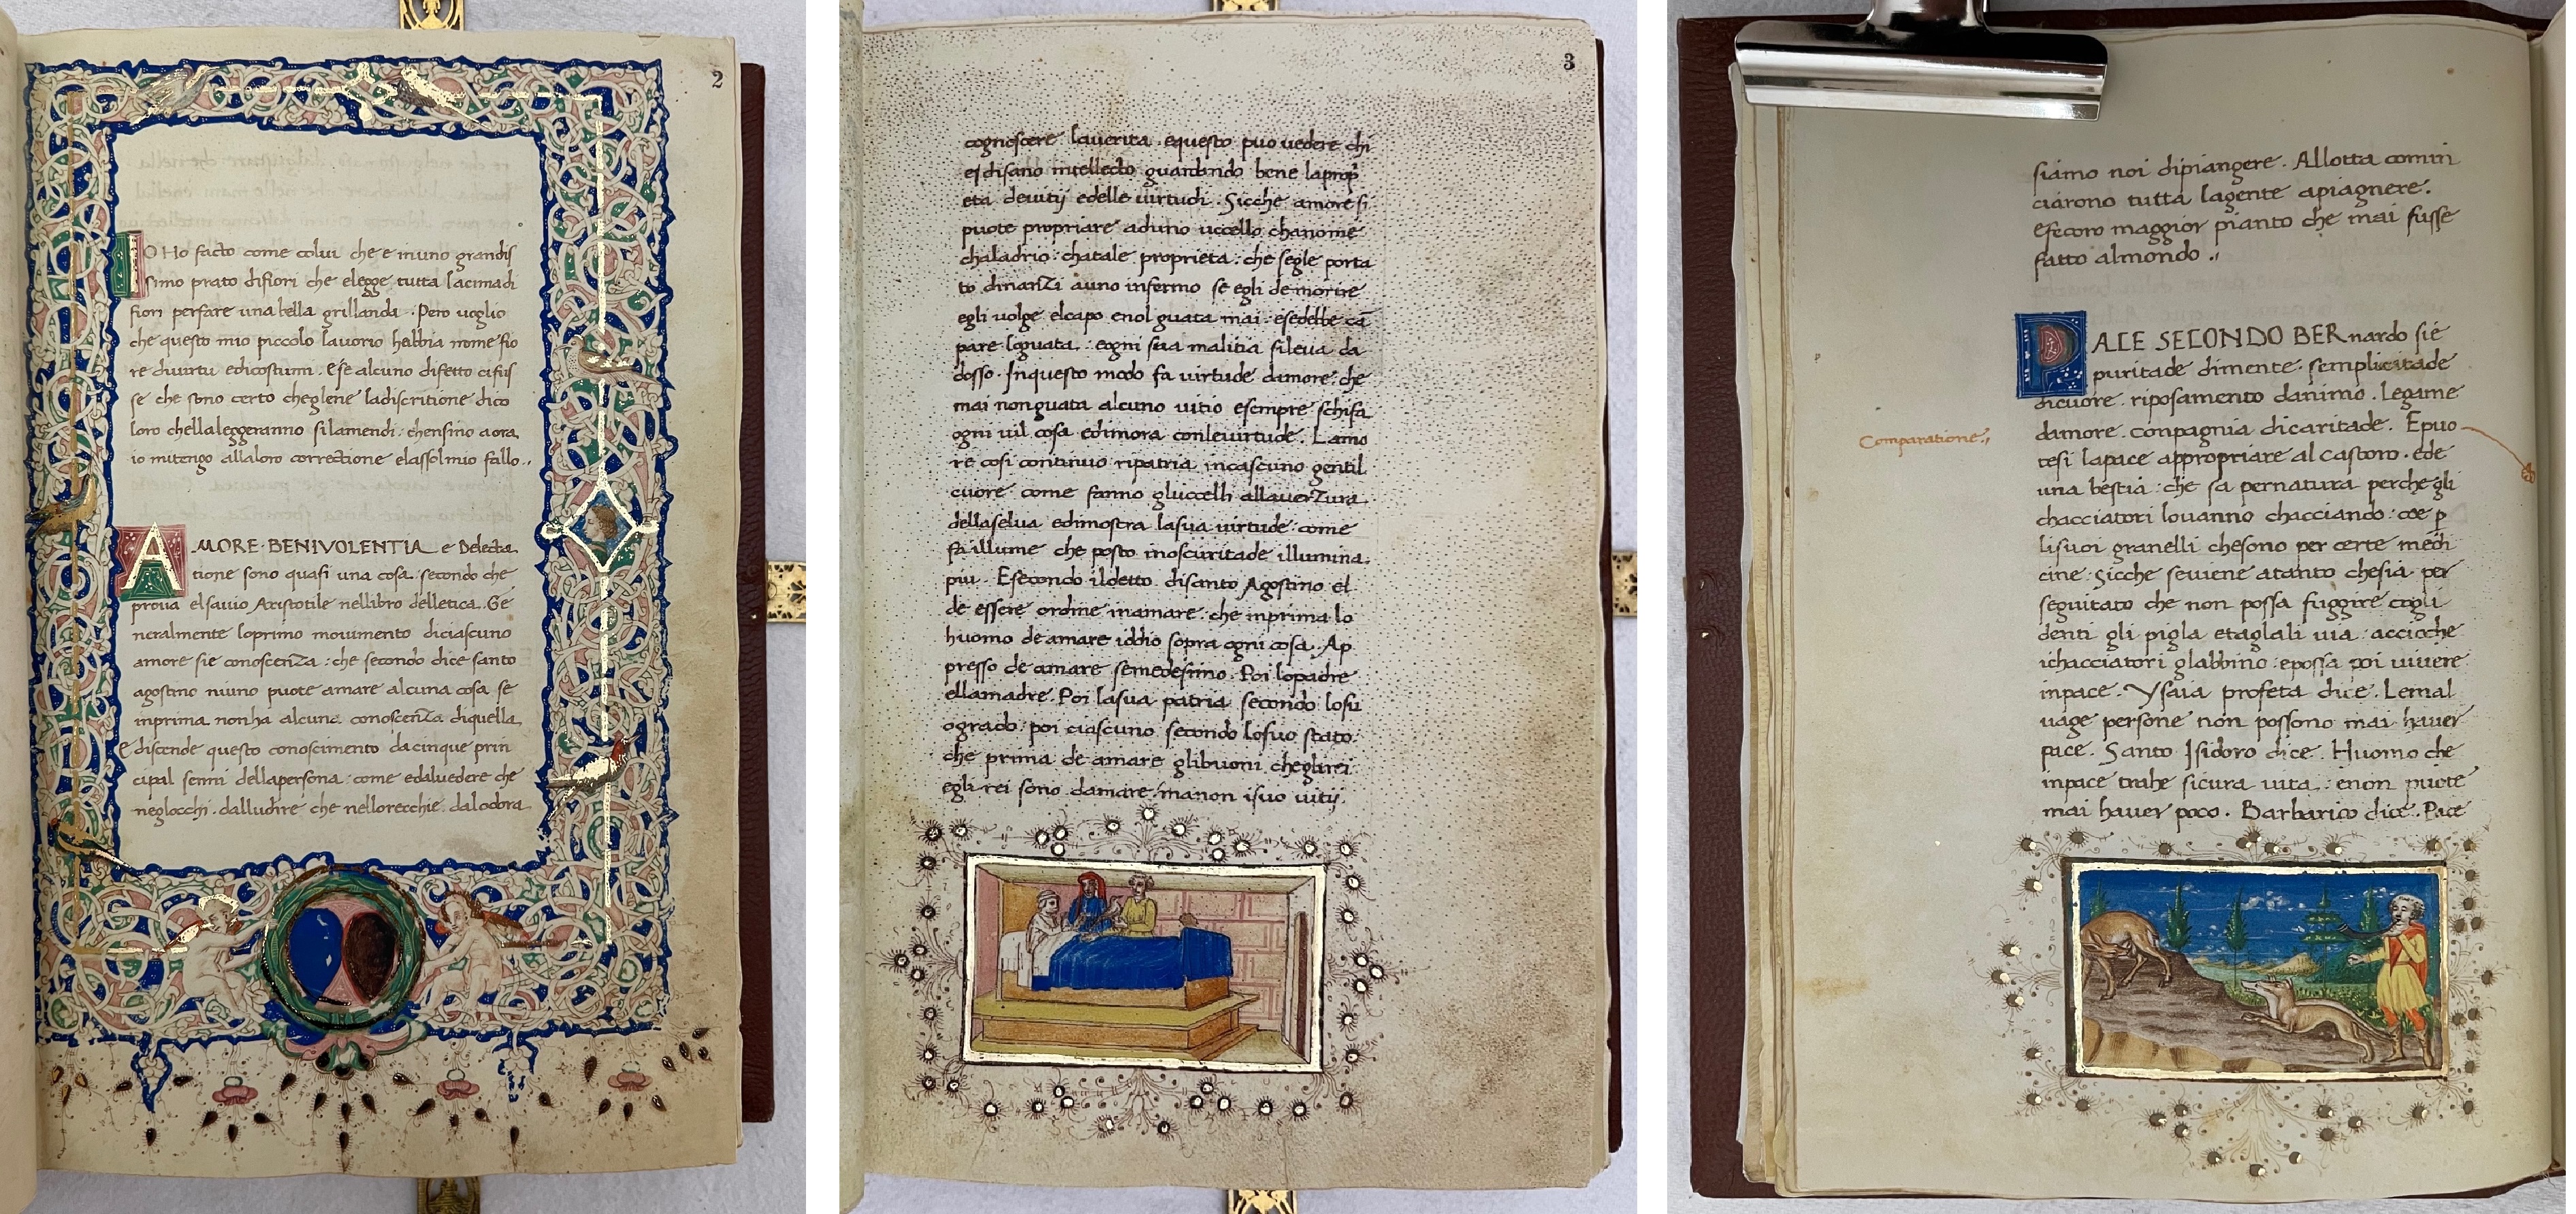 2
IO Ho facto come colui che e inuno grandis
simo prato difiori che elegge tutta lacimadi
fiori perfare una bella grillanda . Pero uoglio
che questo mio piccolo lauorio habbia nome fio
re diuirtu edicostumi . Ese alcuno difetto cifus
se che sono certo cheglene ladiscritione dico
loro chellaleggeranno silamendi : chensino aora
io mitengo allaloro correctione elassolmio fallo .,
AMORE · BENIVOLENTIA e Delecta
tione sono quasi una cosa secondo che
proua elsauio Aristotile nellibro delletica . Ge
neralmente loprimo mouimento diciascuno
amore sie conoscenza : che secondo dice santo
agostino niuno puote amare alcuna cosa se
inprima nonha alcuna conoscenza diquella
E discende questo conoscimento da cinque prin
cipal senni dellapersona : come edaluedere che
neglocchi . dalludire che nellorecchie . dalodora
3
cognoscere lauerita . equesto puo uedere chi
e disano intellecto guardando bene laprop
eta deuitij edelle uirtudi . Sicche amore si
puote propriare aduno uccello chanome
chaladrio : chatale proprieta : che segle porta
to dinanzi auno infermo se egli de morire
egli uolge elcapo enol guata mai : esedebbe cā
pare loguata . : eogni sua malitia sileua da
dosso . Inquesto modo fa uirtude damore : che
mai nonguata alcuno uitio esempre schifa
ogni uil cosa edimora conleuirtude . Lamo
re cosi continuo ripatria incascuno gentil
cuore come fanno gluccelli allauerzura
dellaselua edimostra lasua uirtude : come
fa illume che posto inoscuritade illumina
piu . Esecondo ildetto disanto Agostino el
de essere ordine inamare : che inprima lo
huomo de amare iddio sopra ogni cosa . Ap
presso de amare semedesimo . Poi lopadre
ellamadre . Poi lasua patria secondo losu
ogrado : poi ciascuno secondo losuo stato :
che prima de amare glibuoni cheglirei :
egli rei sono damare : manon isuo uitij .
siamo noi dipiangere . Allotta comin
ciarono tutta lagente apiagnere .
efecoro maggior pianto che mai fusse
fatto almondo .,
PACE SECONDO BERnardo sie
puritade dimente . semplicitade
dicuore . riposamento danimo . Legame
Comparatione .,
damore . conpagnia dicaritade . E puo
tesi lapace appropriare al castoro . ede
una bestia : che sa pernatura perche gli
chacciatori louanno chacciando : coe p
lisuoi granelli chesono per certe medi
cine : sicche seuiene atanto chesia per
seguitato che non possa fuggire cogli
denti gli pigla etaglali uia : accioche
ichacciatori glabbino : epossa poi uiuere
inpace . Ysaia profeta dice . Lemal
uage persone non possono mai hauer
pace . Santo Isidoro dice . Huomo che
inpace trahe sicura uita : enon puote
mai hauer poco . Barbarico dice . Pace